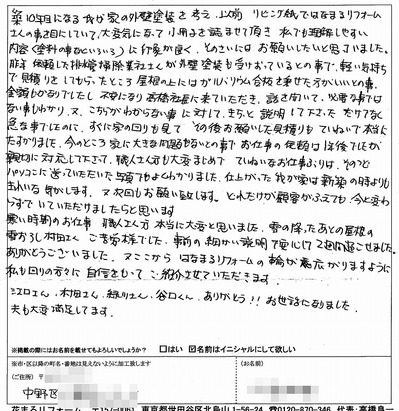 築10年目になる我が家の外壁塗装を考え、以前リビング紙ではなまるリフォーム
さんの事を目にしていて、大変気になって小冊子を読ませて頂き、私でも理解しやすい
内容(塗料の事などいろいろ)に好感が良く、そのさいにはお願いしたいと思っていました。
依頼した排管掃除業社さんが外壁塗装も受けおっているとの事で、軽い気持ち
で見積りをしてもらったところ屋根の上にはガルバリウム合板を乗せた方がいいとの事、
金額もかなりでしたし、不安になり高橋社長に来ていただき、話を聞いて、必要な事では
ない事もわかり、又、こちらがわからない事に対して、きちっと説明して下さった だけでなく
急な事でしたのに、すぐに家の回りも見て その後お願いした見積りもていねいで本当に
たすかりました。今のところ家に大きな問題もないとの事でお仕事の依頼は
親切に対応して下さって、職人さんも大変まじめで ていねいなお仕事ぶりは、そのつど
パソコンに送っていただいた写真でもよくわかりました。仕上がった我が家は新築の時よりも
きれいな気がします。又次回もお願い致します。どれだけが顧客がふえても、今と変わ
らずでいていただけましたらと思います
寒い時期のお仕事 職人さん方 本当に大変と思いました。雪の降ったあとの屋根の
雪おろし村田さん ご苦労様でした。事前の細かい説明で安心して2週間過ごせました。
ありがとうございました。ここから はなまるリフォームの輪が広がりますように
私も回りの方々に 自信をもって ご紹介させていただきます。
江口さん、村田さん、緑川さん、谷口くん、ありがとう!!お世話になりました。
夫も大変満足してます。
※掲載の際にはお名前を載せてもよろしいでしょうか? □はい ☑名前はイニシャルにして欲しい
※市・区以降の町名・番地は見えないように加工致します
(ご住所) 〒
(お名前)
中野区
花まるリフォーム 〒157-0061 東京都世田谷区北烏山1-56-24 ☎0120-870-346 代表:高橋良一